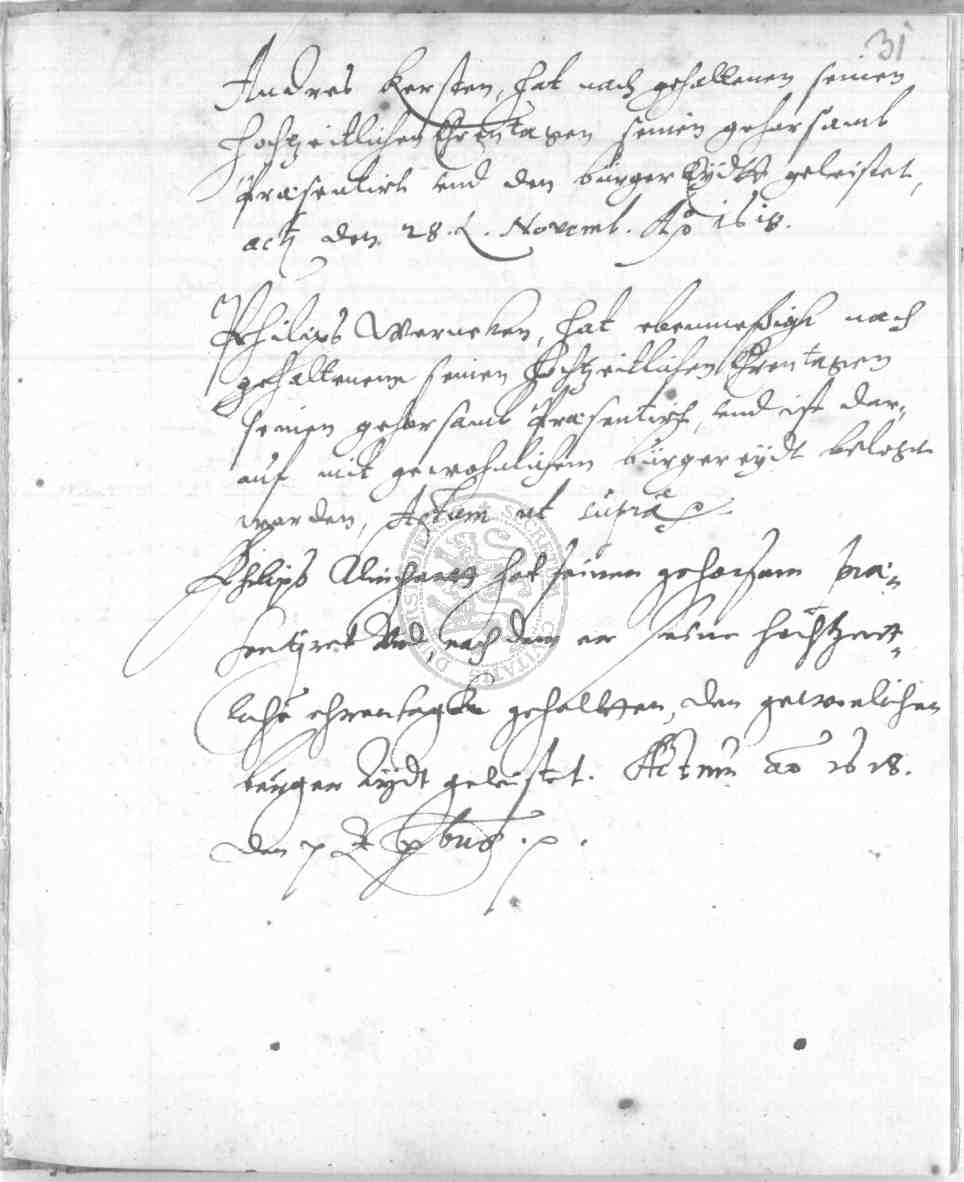 31
Andres Kersten, hat nach gehaltenen seinen
hochzeitlichen Ehrentagen seinen gehorsamb
Præsentirt und den bürger Eydt geleistet,
act. den 28. Novemb. Ao 1618.
Philips Werneken, hat ebenmeßigk nach
gehaltenenn seinen Hochzeitlichen Ehrentagen
seinen gehorsamb Præsentirt, und ist dar-
auf mit gewohnlichem bürgereydt belegt
worden, Actum ut supra
Philips hat seinen gehorsam præ-
sentyret Und nach dem er seine hochtzeit-
liche ehrentage gehaltten, den gewonlichen
burger Eydt geleistet. Actum ao 1618.
den 7